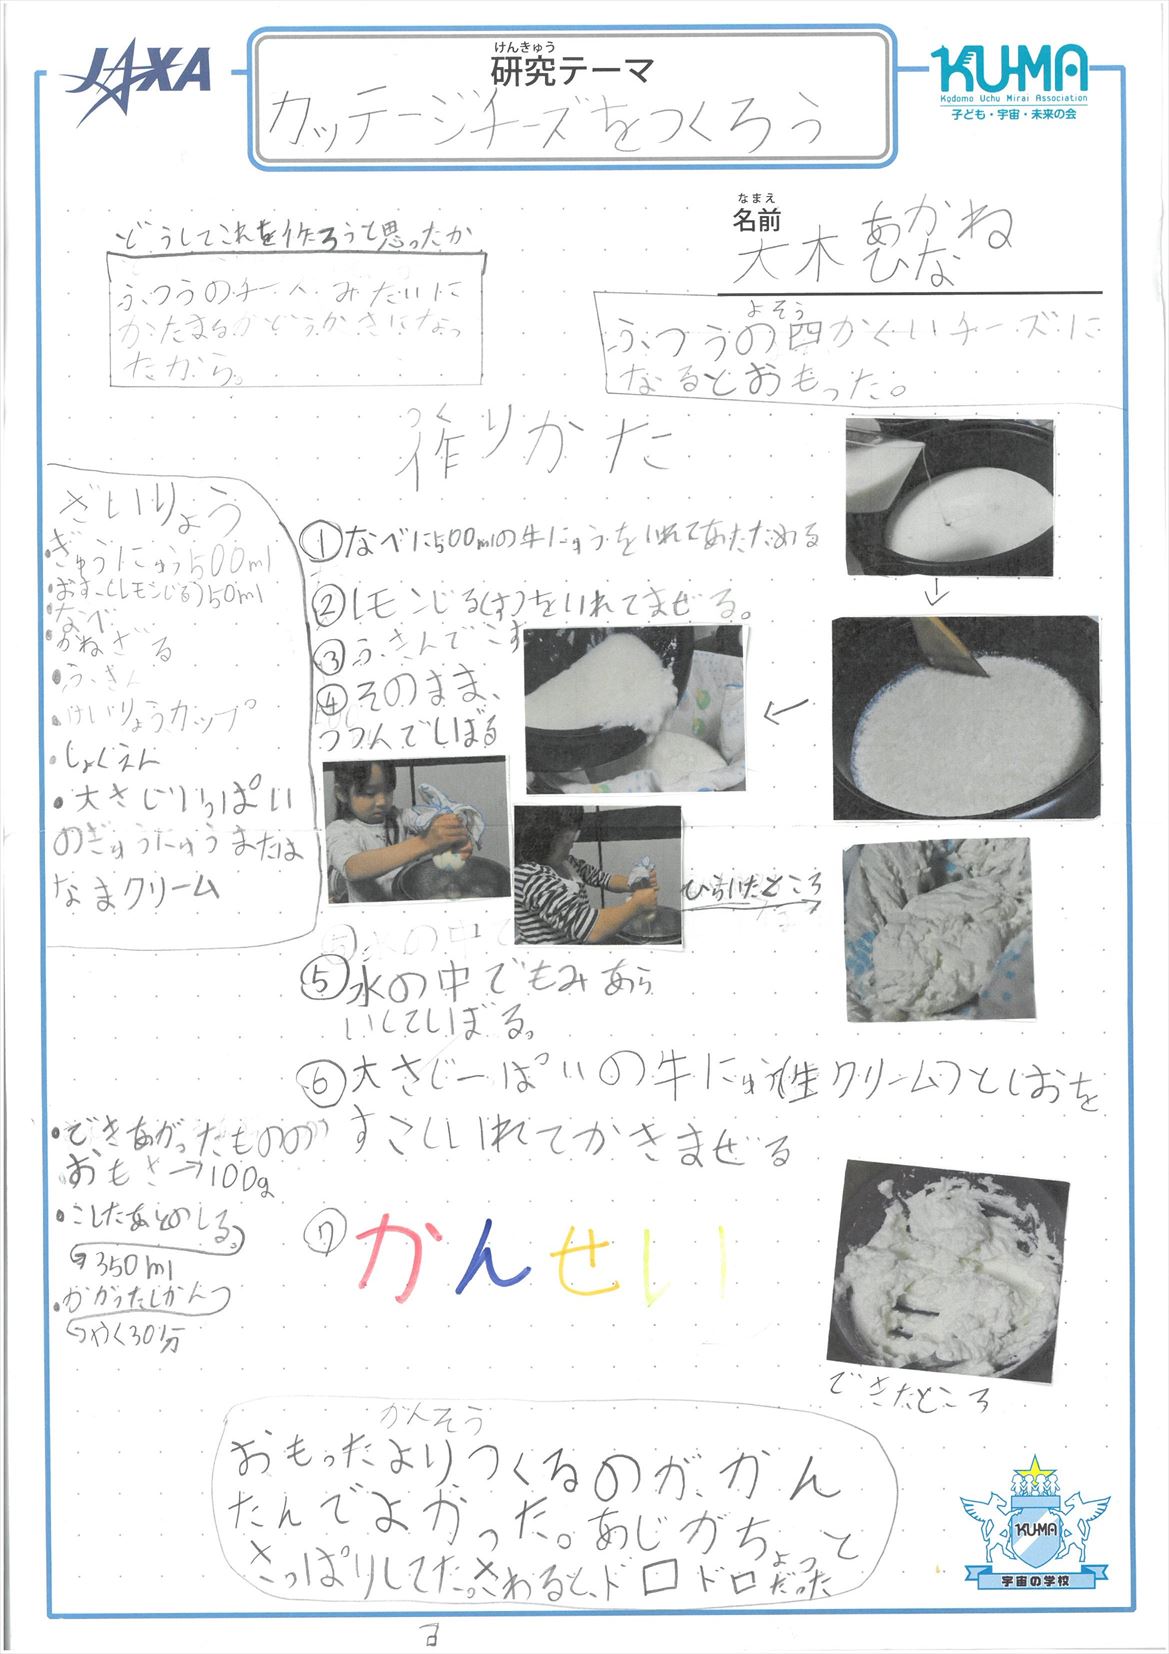 JAXA
けんきゅう
研究テーマ
カッテージチーズをつくろう
KUMA
Kodomo Uchu Mirai Association
子ども・宇宙・未来の会
なまえ
名前
大木 あかね
ひな
どうしてこれを作ろうと思ったか
ふつうのチーズみたいに
かたまるかどうかきになっ
たから。
よそう
ふつうの四かくいチーズに
なるとおもった。
つく
作りかた
ざいりょう
・ぎゅうにゅう500ml
・おす(レモンじる)50ml
・なべ
・かねざる
・ふきん
・けいりょうカップ
・しょくえん
・大さじ1いっぱい
のぎゅうにゅうまたは
なまクリーム
①なべに500mlの牛にゅうをいれてあたためる
②レモンじる(す)をいれてまぜる。
③ふきんでこす
④そのまま、
つつんでしばる
ひらいたところ
⑤水の中でもみあら
いしてしぼる。
⑥大さじ一ぱいの牛にゅう(生クリーム)としおを
すこしいれてかきまぜる
・できあがったものの
おもさ→100g
・こしたあとのしる。
350ml
・かかったじかん
やく30分
⑦かんせい
できたところ
かんそう
おもったよりつくるのがかん
たんでよかった。あじがちょっと
さっぱりしてた。さわると、ドロドロだった
KUMA
宇宙の学校